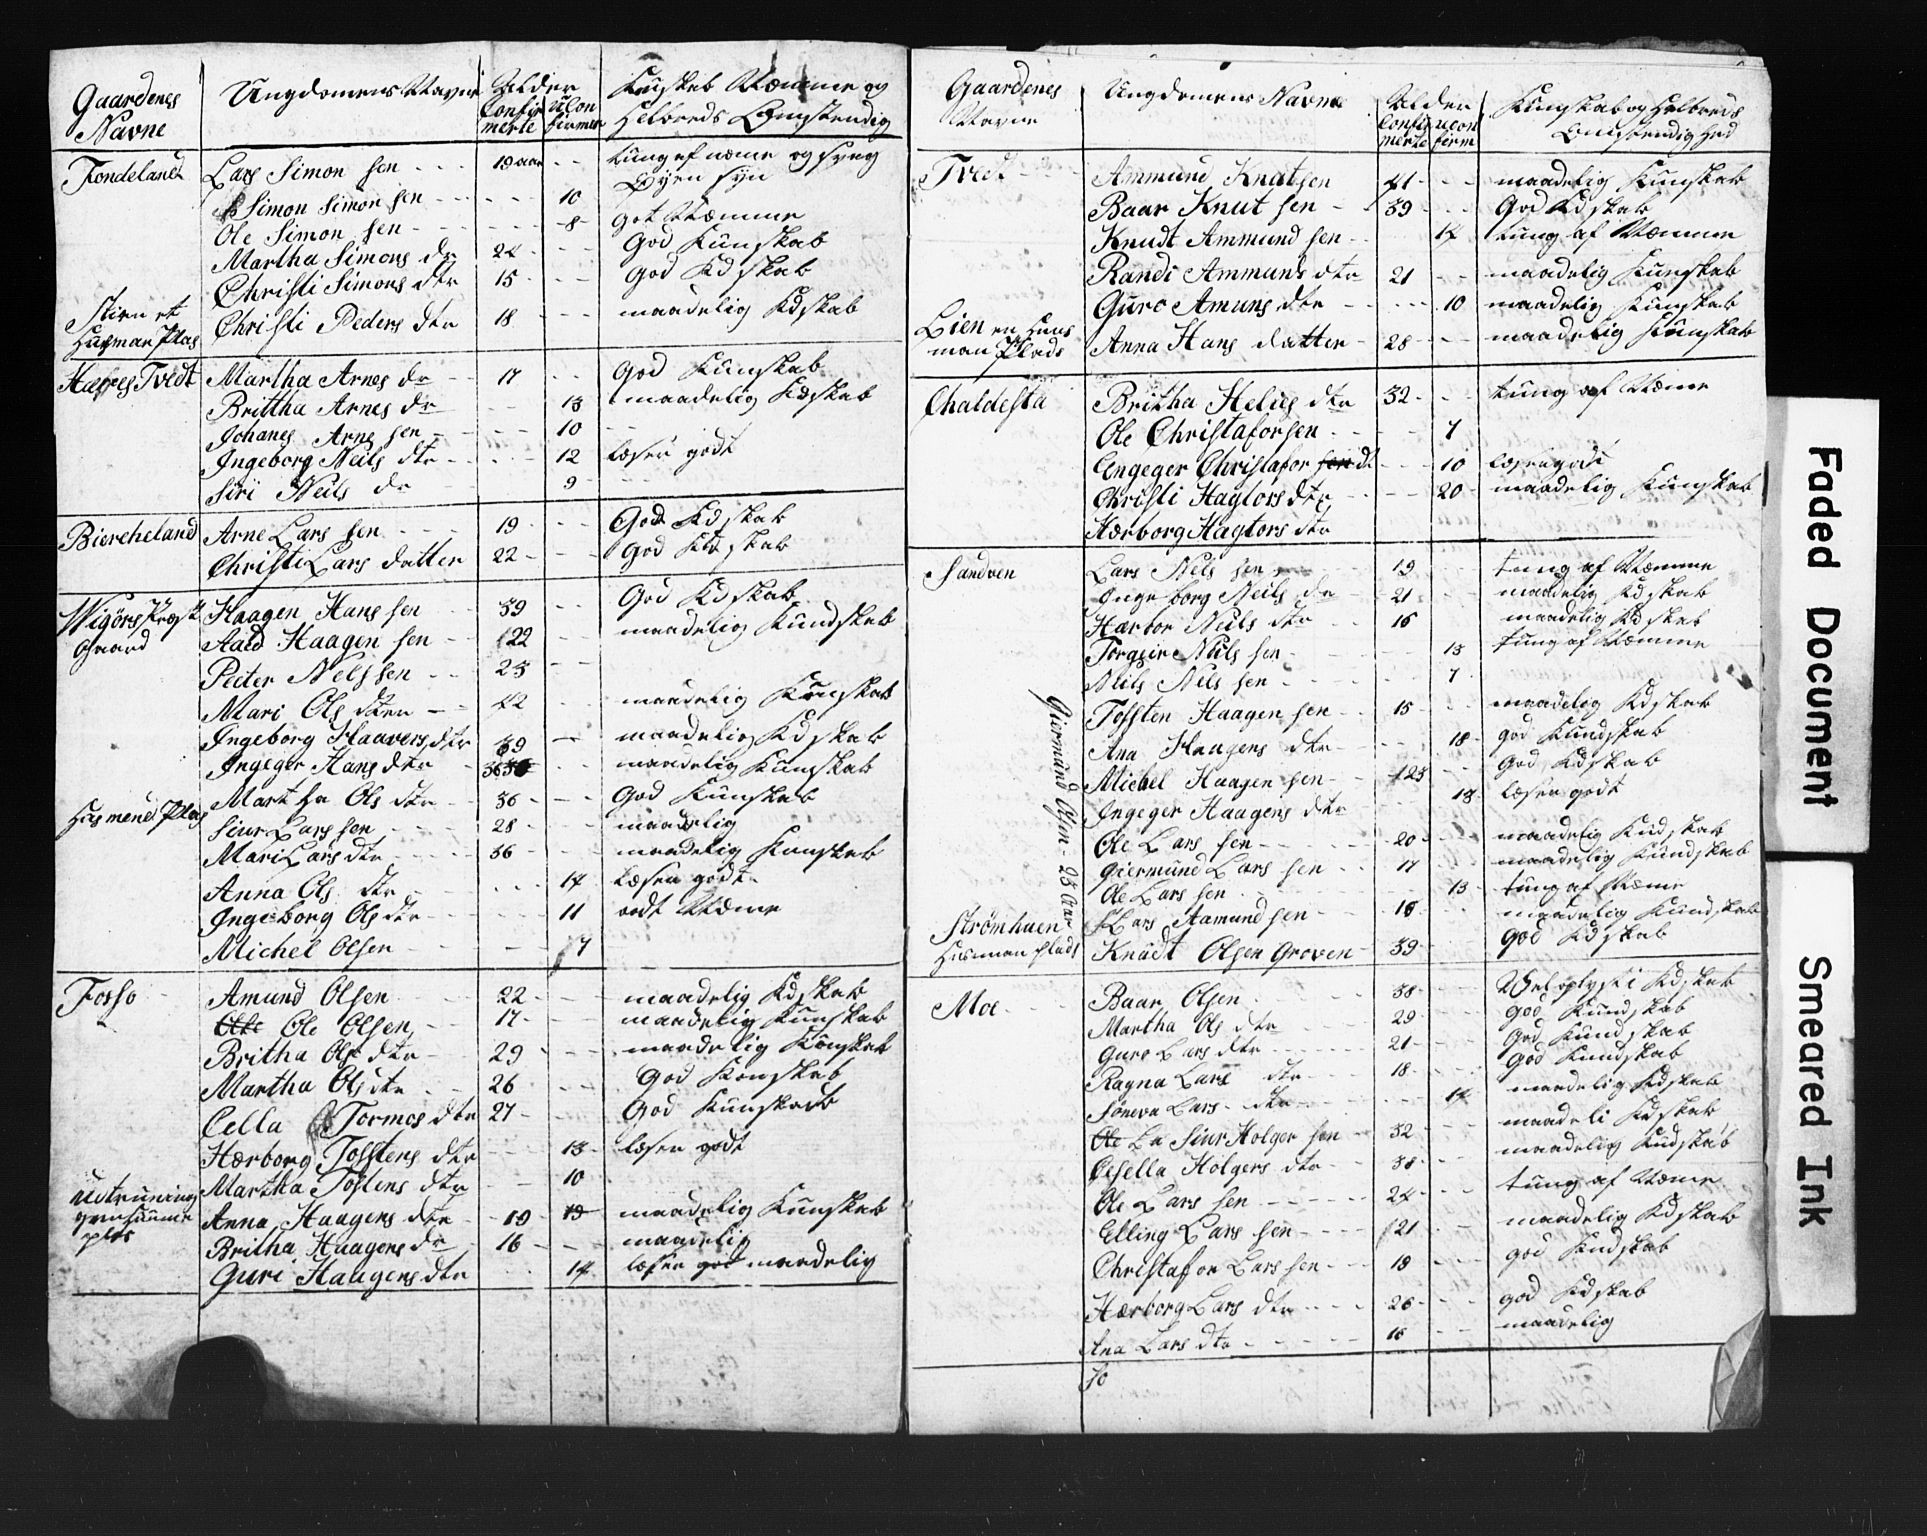 Gaardenes Navne | Ungdomens Navne | Alder Confirmerte | Ucon firmer | Kunskab Næmme og Helbreds Omstendig
Tondeland | Lars Simon sen | 19 aar | tung af næme og svag Øyen syn
Simon Simon sen | 10
Ole Simon sen | 8 | got Næmme
Martha Simons dr | 24 | God Kunskab
Christi Simons dtr | 15 | God Kdskab
Stien et Husman Plas | Christi Peders dtr | 18 | maadelig Kdskab
Hæfres Tvedt | Martha Arnes dr | 17 | God Kunskab
Brittha Arnes dr | 13 | maadelig Kdskab
Johanes Arne sen | 10
Ingeborg Neils dtr | 12 | læser godt
Siri Neils dr | 9
Biercheland | Arne Lars sen | 19 | God Kdskab
Christi Lars datter | 22 | God Kdskab
Wigørs Præste Gaard | Haagen Hans sen | 39 | God Kdskab
Aad Haagen sen | 22 | maadelig Kundskab
Peter Nels sen | 23
Mari Ols dter | 42 | maadelig Kunskab
Ingeborg Haavers dtr | 39 | maadelig Kdskab
Ingeger Hans dtr | 36 | maadelig Kunskab
Hus mend Plas | Martha Ols dtr | 36 | God Kunskab
Siur Lars sen | 28 | maadelig
Mari Lars dtr | 36 | maadelig Kunskab
Anna Ols dtr | 14 | læser godt
Ingeborg Ols dtr | 11 | godt Næme
Michel Olsen | 7
Fosso | Amund Olsen | 22 | maadelig Kdskab
Ole Olsen | 17 | maadelig Kunskab
Britha Ols dtr | 29 | maadelig Konskab
Martha Ols dtr | 26 | God Konskab
Cella Tormos dtr | 27 | God Kunskab
Hærborg Tostens dtr | 13 | læser godt
Martha Tostens dtr | 10
Anna Haagens dtr | 19 | maadelig Kunskab
Britha Haagens dr | 16 | maadelig
Guri Haugens dtr | 14 | læser maadelig
Gaardenes Navne | Ungdomens Navne | Alder Confir merte | ucon firm | Kunskab og Helbreds Omstendig Hed
Tvedt | Ammund Knutsen | 41 | maadelig Kunskab
Baar Knut sen | 39 | God Kdskab
Knudt Ammund sen | 14 | tung af Næmme
Randi Ammunds dtr | 21 | maadelig Kunskab
Guro Amuns dtr | 10 | maadelig Kunskab
Lien en Huus man Plads | Anna Hans datter | 28 | maadelig Kunskab
Chaldesta | Britha Helies dtr | 32 | tung af Næme
Ole Christaforsen | 7
Engeger Christafor dt | 10 | læser godt
Christi Hagtors dtr | 20 | maadelig Kunskab
Hærborg Hagtors dtr
Sandven | Lars Neils sen | 19 | tung af Næmme
Ingeborg Neils dr | 21 | maadelig Kdskab
Hærbor Neils dtr | 16 | maadelig Kdskab
Torgeir Neils sen | 13 | tung af Næmme
Neils Neils sen | 7
Tossten Haagen sen | 15 | maadelig Kdskab
Ana Haugens dtr | 18 | god Kundskab
Michel Haagen sen | 23 | God Kdskab
Ingeger Haagens dtr | 13 | læser godt
Ole Lars sen | 20 | maadelig Kudskab
Giermund Lars sen | 17 | maadelig Kundskab
Ole Lars sen | 13 | tung af Næme
Giermund Olsen - 23 Aar
Strømhuen Husman plads | Lars Aamund sen | 16 | maadelig Kundskab
Knudt Olsen Groven | 39 | God Kdskab
Moe | Baar Olsen | 38 | Vel oplyst i Kdskab
Martha Ols dtr | 29 | God Kundskab
Guro Lars dtr | 21 | God Kundskab
Ragna Lars dtr | 18 | God Kundskab
Søneva Lars dtr | 14 | maadelig Kdskab
Siur Holger sen | 32 | maadeli Kdskab
Cesella Holgers dtr | 38 | maadelig Kudskab
Ole Lars sen | 24 | tung af Næme
Elling Lars sen | 21 | maadelig Kdskab
Christafor Lars sen | 19 | god Kudskab
Hærborg Lars dtr | 26 | god Kdskab
Ana Lars dtr | 16 | maadelig
Jo
Faded Document
Smeared Ink